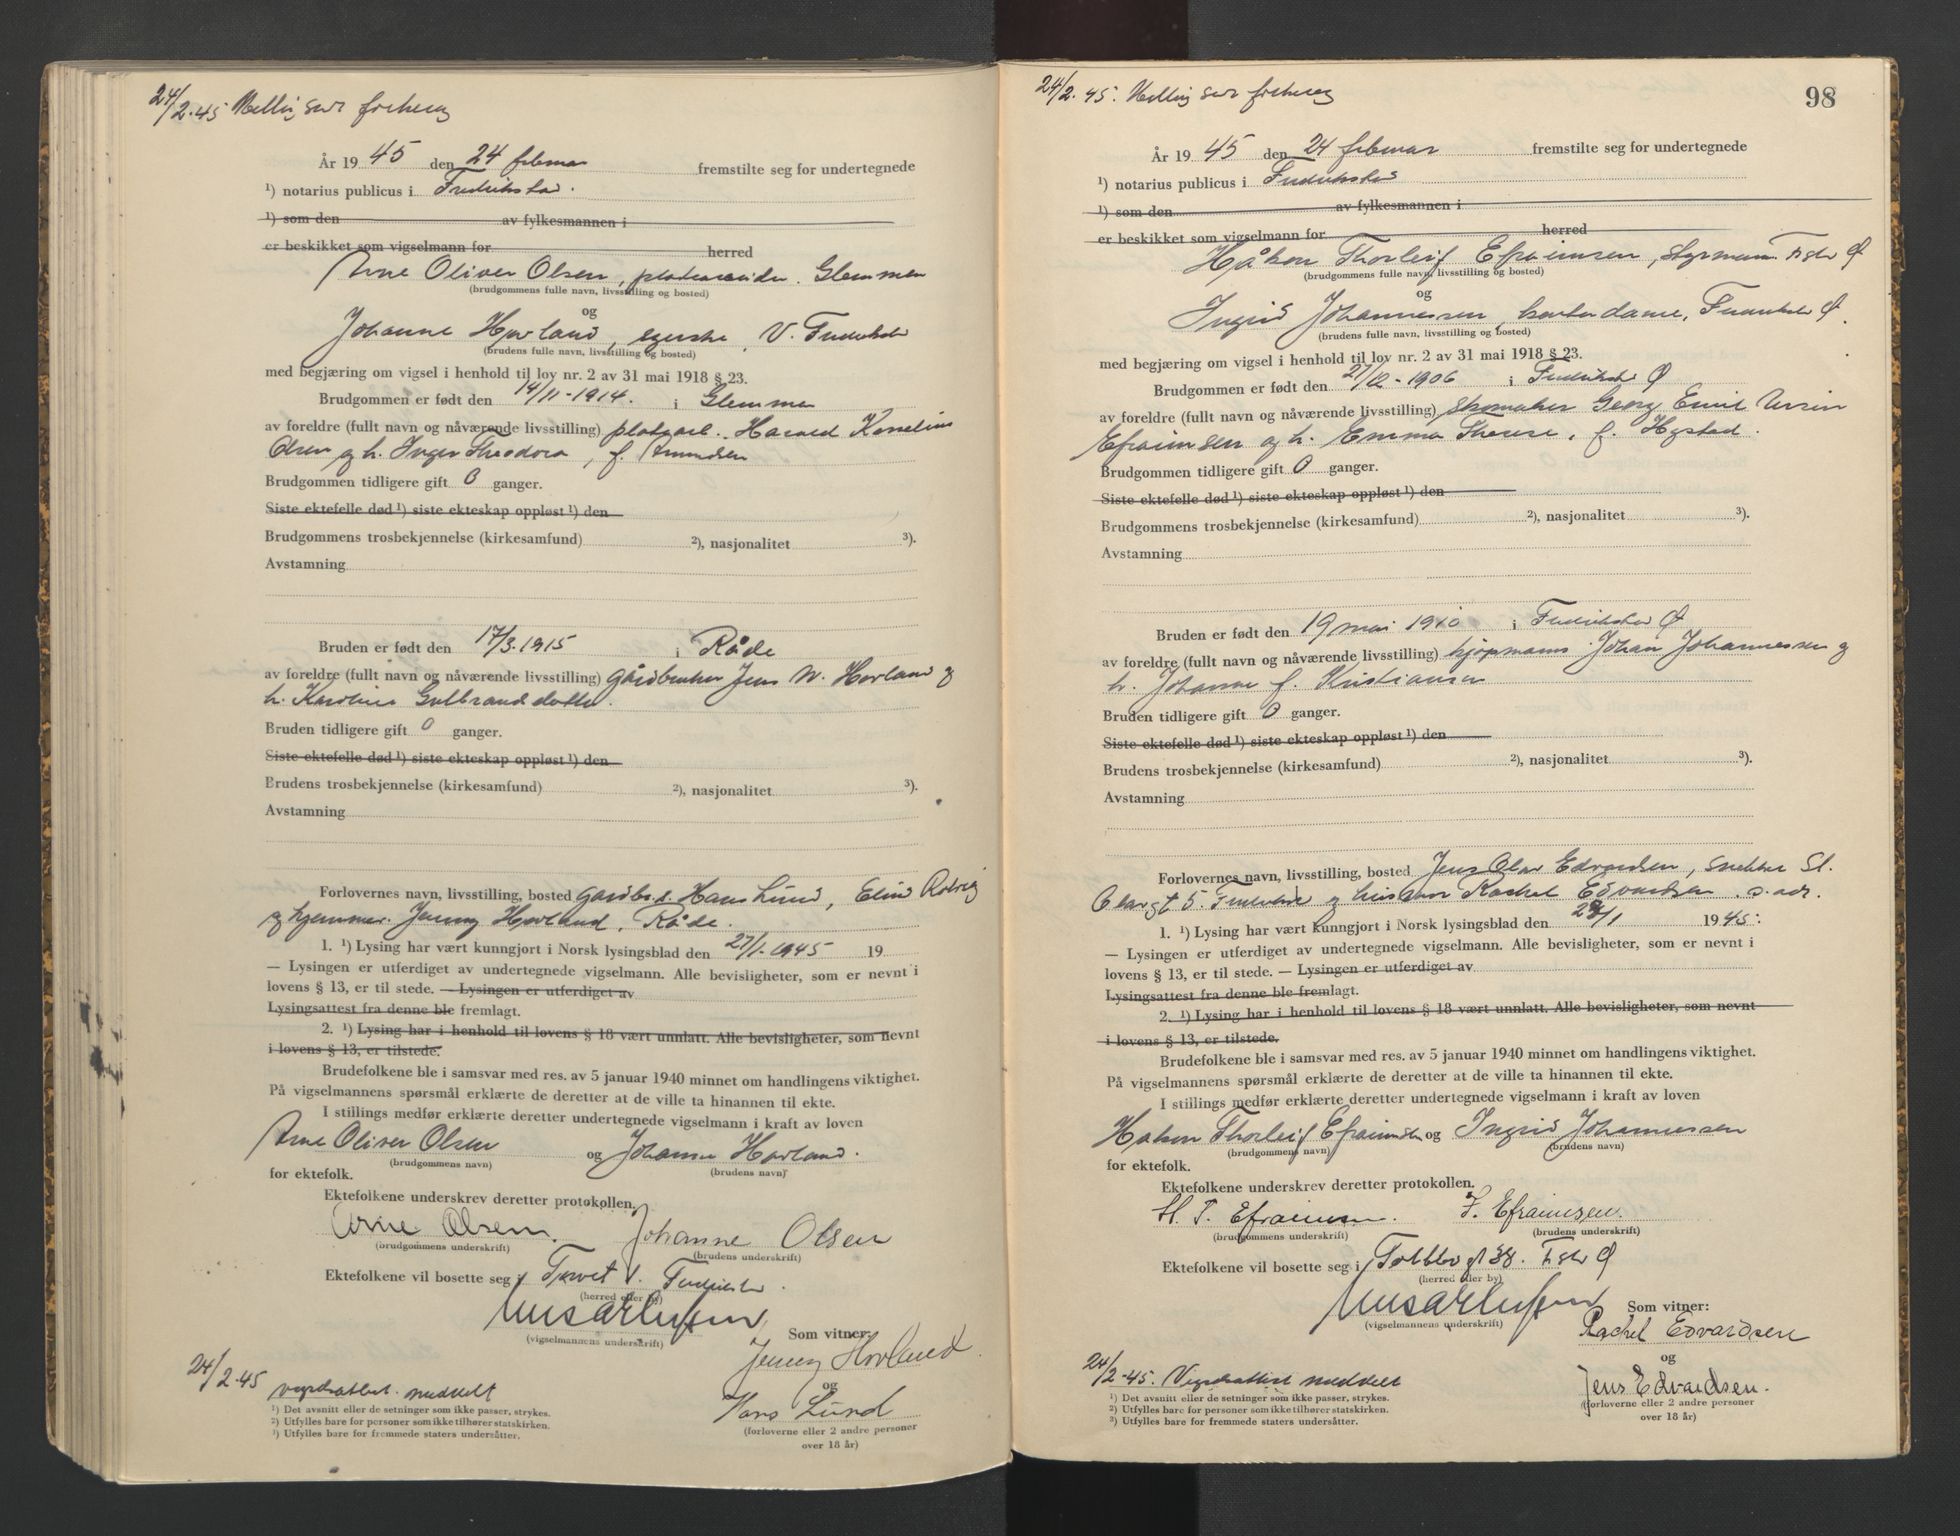 24/2-45 Melling sur forhevg
År 1945 den 24 februar fremstilte seg for undertegnede
¹) notarius publicus i Fredrikstad.
¹) som den av fylkesmannen i
er beskikket som vigselmann for herred
Arne Oliver Olsen, platearbeider. Glemmen
(brudgommens fulle navn, livsstilling og bosted)
og
Johanne Hovland, syerske, V. Fredrikstad
(brudens fulle navn, livsstilling og bosted)
med begjæring om vigsel i henhold til lov nr. 2 av 31 mai 1918 § 23.
Brudgommen er født den 14/11-1914. i Glemmen
av foreldre (fullt navn og nåværende livsstilling) platearb. Harald Kornelius
Olsen og h. Inger Theodora, f. Amundsen
Brudgommen tidligere gift 0 ganger.
Siste ektefelle død ¹) siste ekteskap oppløst ¹) den
Brudgommens trosbekjennelse (kirkesamfund) ²), nasjonalitet ³).
Avstamning
Bruden er født den 17/3.1915 i Råde
av foreldre (fullt navn og nåværende livsstilling) gårdbruker Jens W. Hovland og
h. Karoline Gulbrandsdatter.
Bruden tidligere gift 0 ganger.
Siste ektefelle død ¹) siste ekteskap oppløst ¹) den
Brudens trosbekjennelse (kirkesamfund) ²), nasjonalitet ³).
Avstamning
Forlovernes navn, livsstilling, bosted gardbr. Hans Lund,
og hjemmev. Jenny Hovland, Råde.
1. ¹) Lysing har vært kunngjort i Norsk lysingsblad den 27/1-1945 19
— Lysingen er utferdiget av undertegnede vigselmann. Alle bevisligheter, som er nevnt i
lovens § 13, er til stede. — Lysingen er utferdiget av
Lysingsattest fra denne ble fremlagt.
2. ¹) Lysing har i henhold til lovens § 18 vært unnlatt. Alle bevisligheter, som nevnt
i lovens § 13, er tilstede.
Brudefolkene ble i samsvar med res. av 5 januar 1940 minnet om handlingens viktighet.
På vigselmannens spørsmål erklærte de deretter at de ville ta hinannen til ekte.
I stillings medfør erklærte deretter undertegnede vigselmann i kraft av loven
Arne Oliver Olsen og Johanne Hovland.
(brudgommens navn) (brudens navn)
for ektefolk.
Ektefolkene underskrev deretter protokollen.
Arne Olsen. Johanne Olsen
(brudgommens underskrift) (brudens underskrift)
Ektefolkene vil bosette seg i Torvet 1. Fredrikstad.
(herred eller by)
(vigselmannens underskrift)
Som vitner:
Jenny Hovland.
og
Hans Lund
(forloverne eller 2 andre personer
over 18 år)
24/2-45 vigselsattest meddelt
¹) Det avsnitt eller de setninger som ikke passer, strykes.
²) Utfylles bare for personer som ikke tilhører statskirken.
³) Utfylles bare for fremmede staters undersåtter.
24/2-45. Melling sur forhevg
98
År 1945 den 24 februar fremstilte seg for undertegnede
¹) notarius publicus i Fredrikstad
¹) som den av fylkesmannen i
er beskikket som vigselmann for herred
Håkon Thorleif Efraimsen, styrmann. Fstd Ø
(brudgommens fulle navn, livsstilling og bosted)
og
Ingrid Johannessen, kontordame, Fredrikstad Ø.
(brudens fulle navn, livsstilling og bosted)
med begjæring om vigsel i henhold til lov nr. 2 av 31 mai 1918 § 23.
Brudgommen er født den 27/12-1906 i Fredrikstad Ø
av foreldre (fullt navn og nåværende livsstilling) skomaker Georg Emil Ursin
Efraimsen og h. Emma Therese, f. Hystad.
Brudgommen tidligere gift 0 ganger.
Siste ektefelle død ¹) siste ekteskap oppløst ¹) den
Brudgommens trosbekjennelse (kirkesamfund) ²), nasjonalitet ³).
Avstamning
Bruden er født den 19 mai 1910 i Fredrikstad Ø
av foreldre (fullt navn og nåværende livsstilling) kjøpmann Johan Johannessen og
h. Johanne f. Kristiansen
Bruden tidligere gift 0 ganger.
Siste ektefelle død ¹) siste ekteskap oppløst ¹) den
Brudens trosbekjennelse (kirkesamfund) ²), nasjonalitet ³).
Avstamning
Forlovernes navn, livsstilling, bosted Jens Olav Edvardsen, snekker St.
Olavsgt 5. Fredrikstad og hustru Rachel Edvardsen. s. adr.
1. ¹) Lysing har vært kunngjort i Norsk lysingsblad den 1945.
— Lysingen er utferdiget av undertegnede vigselmann. Alle bevisligheter, som er nevnt i
lovens § 13, er til stede. — Lysingen er utferdiget av
Lysingsattest fra denne ble fremlagt.
2. ¹) Lysing har i henhold til lovens § 18 vært unnlatt. Alle bevisligheter, som nevnt
i lovens § 13, er tilstede.
Brudefolkene ble i samsvar med res. av 5 januar 1940 minnet om handlingens viktighet.
På vigselmannens spørsmål erklærte de deretter at de ville ta hinannen til ekte.
I stillings medfør erklærte deretter undertegnede vigselmann i kraft av loven
Håkon Thorleif Efraimsen og Ingrid Johannessen
(brudgommens navn) (brudens navn)
for ektefolk.
Ektefolkene underskrev deretter protokollen.
H. T. Efraimsen. I. Efraimsen.
(brudgommens underskrift) (brudens underskrift)
Ektefolkene vil bosette seg i Tollbodgt 38. Fstd Ø
(herred eller by)
(vigselmannens underskrift)
Som vitner:
Rachel Edvardsen
og
Jens Edvardsen.
(forloverne eller 2 andre personer
over 18 år)
24/2-45. Vigselsattest meddelt
¹) Det avsnitt eller de setninger som ikke passer, strykes.
²) Utfylles bare for personer som ikke tilhører statskirken.
³) Utfylles bare for fremmede staters undersåtter.